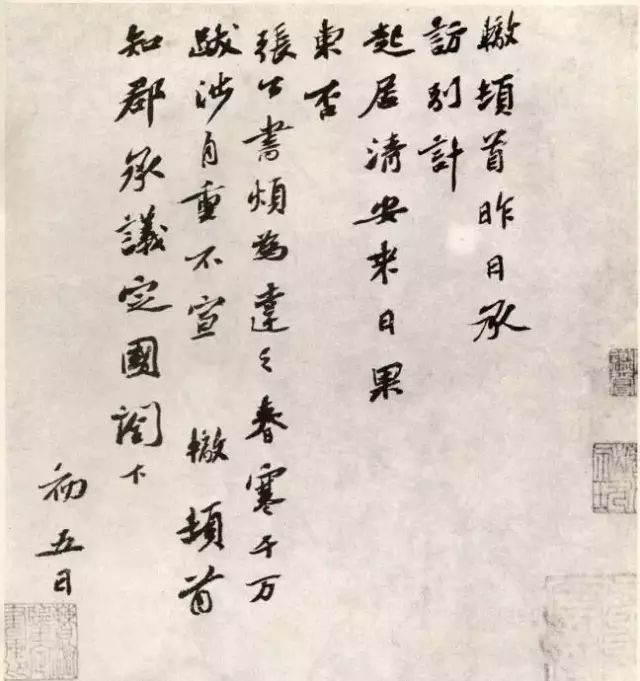 轍頓首昨日承
訪別計
起居清安來日果
東否
張公書煩為達之春寒千万
跋涉自重不宣 轍頓首
知郡承議定國閤下
初五日